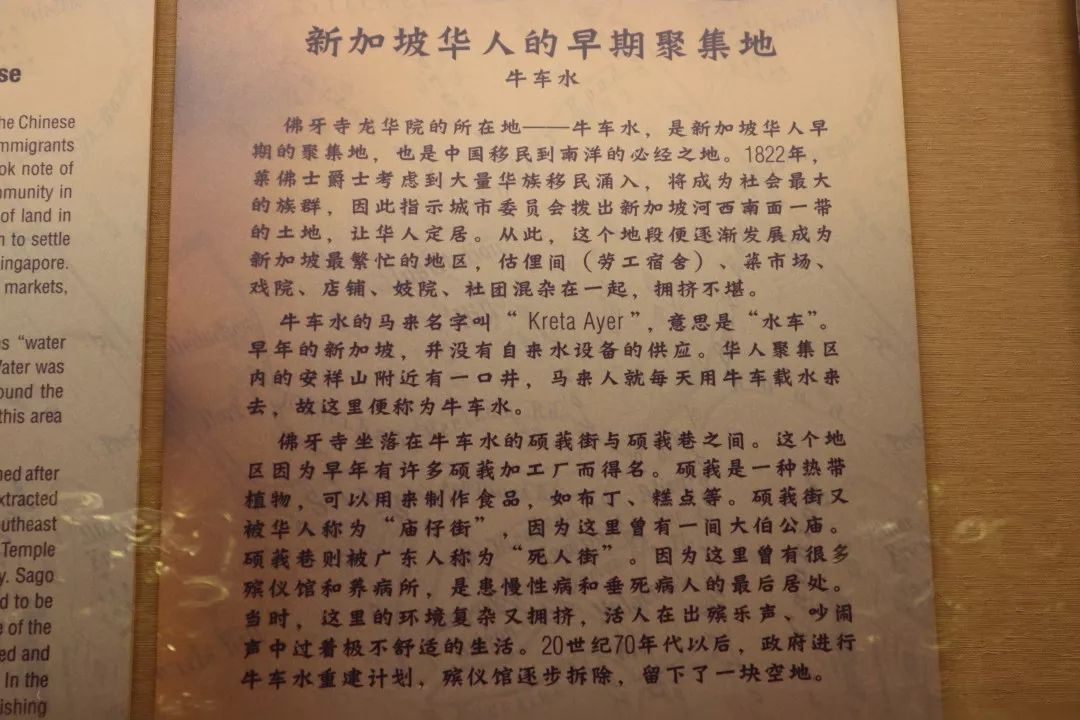 se
he Chinese
mmigrants
ok note of
mmunity in
of land in
n to settle
ingapore.
markets,
s “water
Water was
ound the
this area
ned after
xtracted
outheast
Temple
y. Sago
d to be
e of the
ed and
In the
ishing
新加坡华人的早期聚集地
牛车水
佛牙寺龙华院的所在地——牛车水，是新加坡华人早
期的聚集地，也是中国移民到南洋的必经之地。1822年，
莱佛士爵士考虑到大量华族移民涌入，将成为社会最大
的族群，因此指示城市委员会拨出新加坡河西南面一带
的土地，让华人定居。从此，这个地段便逐渐发展成为
新加坡最繁忙的地区，估俚间（劳工宿舍）、菜市场、
戏院、店铺、妓院、社团混杂在一起，拥挤不堪。
牛车水的马来名字叫“ Kreta Ayer ”，意思是“水车”。
早年的新加坡，并没有自来水设备的供应。华人聚集区
内的安祥山附近有一口井，马来人就每天用牛车载水来
去，故这里便称为牛车水。
佛牙寺坐落在牛车水的硕莪街与硕莪巷之间。这个地
区因为早年有许多硕莪加工厂而得名。硕莪是一种热带
植物，可以用来制作食品，如布丁、糕点等。硕莪街又
被华人称为“庙仔街”，因为这里曾有一间大伯公庙。
硕莪巷则被广东人称为“死人街”。因为这里曾有很多
殡仪馆和养病所，是患慢性病和垂死病人的最后居处。
当时，这里的环境复杂又拥挤，活人在出殡乐声、吵闹
声中过着极不舒适的生活。20世纪70年代以后，政府进行
牛车水重建计划，殡仪馆逐步拆除，留下了一块空地。